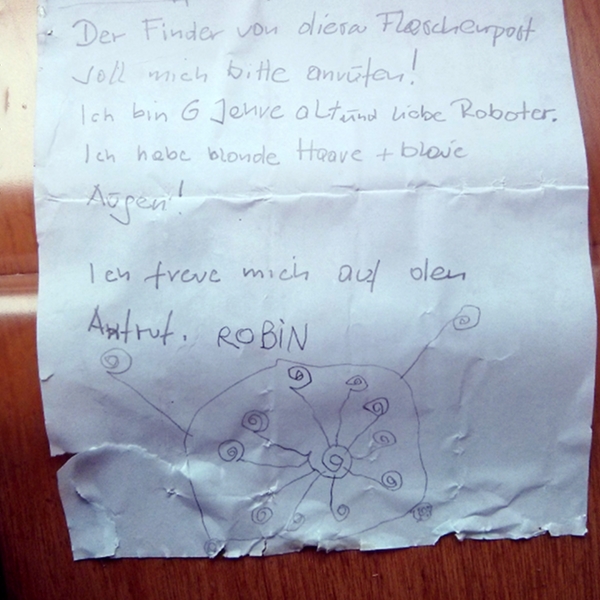 Der Finder von dieser Flaschenpost
soll mich bitte anrufen!
Ich bin 6 Jahre alt und liebe Roboter.
Ich habe blonde Haare + blaue
Augen!
Ich freue mich auf den
Anruf. ROBiN